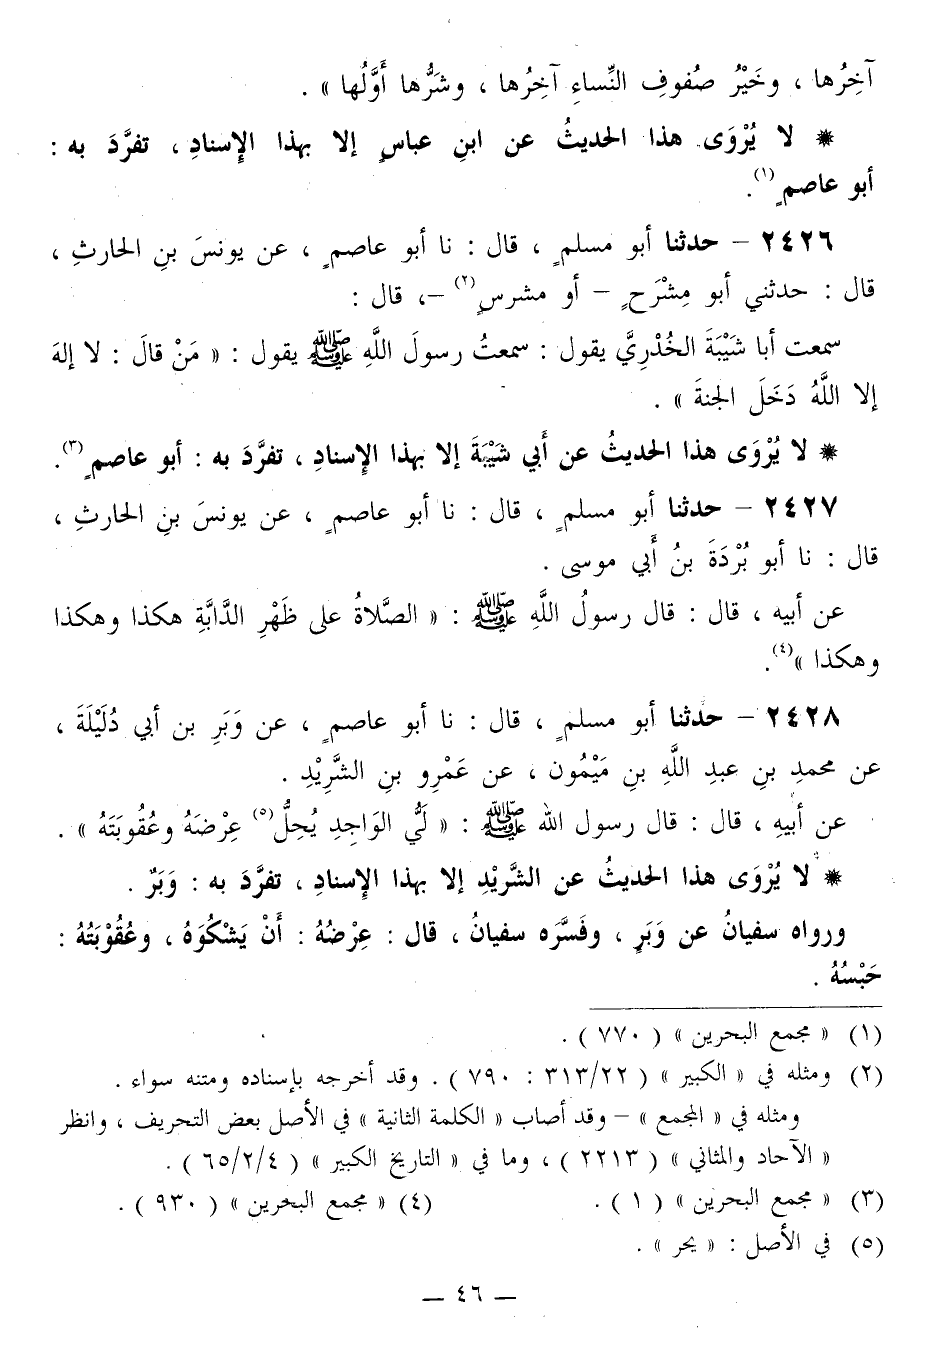 آخِرُها ، وخَيْرُ صُفوفِ النِّساءِ آخِرُها ، وشَرُّها أَوَّلُها » .
* لا يُرْوَى هذا الحديثُ عن ابنِ عباسٍ إلا بهذا الإِسنادِ ، تفرَّدَ به :
أبو عاصمٍ(١).
٢٤٢٦ – حدثنا أبو مسلمٍ ، قال : نا أبو عاصمٍ ، عن يونسَ بنِ الحارثِ ،
قال : حدثني أبو مِشْرَحٍ – أو مشرسٍ(٢) –، قال :
سمعت أبا شَيْبَةَ الخُدْرِيَّ يقول : سمعتُ رسولَ اللَّهِ ﷺ يقول : « مَنْ قالَ : لا إلهَ
إلا اللَّهُ دَخَلَ الجنةَ » .
* لا يُرْوَى هذا الحديثُ عن أَبي شَيْبَةَ إلا بهذا الإِسنادِ ، تفرَّدَ به : أبو عاصمٍ(٣).
٢٤٢٧ – حدثنا أبو مسلمٍ ، قال : نا أبو عاصمٍ ، عن يونسَ بنِ الحارثِ ،
قال : نا أبو بُرْدَةَ بنُ أَبي موسى .
عن أبيه ، قال : قال رسولُ اللَّهِ ﷺ : « الصَّلاةُ على ظَهْرِ الدَّابَّةِ هكذا وهكذا
وهكذا »(٤).
٢٤٢٨ – حدثنا أبو مسلمٍ ، قال : نا أبو عاصمٍ ، عن وَبَرِ بن أبي دُلَيْلَةَ ،
عن محمدِ بنِ عبدِ اللَّهِ بنِ مَيْمُون ، عن عَمْرِو بنِ الشَّرِيْدِ .
عن أبيهِ ، قال : قال رسول الله ﷺ : « لَيُّ الوَاجِدِ يُحِلُّ(٥) عِرْضَهُ وعُقُوبَتَهُ » .
* لا يُرْوَى هذا الحديثُ عن الشَّرِيْدِ إلا بهذا الإِسنادِ ، تفرَّدَ به : وَبَرٌ .
ورواه سفيانُ عن وَبَرٍ ، وفَسَّرَه سفيانُ ، قال : عِرْضُهُ : أَنْ يَشْكُوَهُ ، وعُقُوْبَتُهُ :
حَبْسُهُ .
(١) « مجمع البحرين » ( ٧٧٠ ) .
(٢) ومثله في « الكبير » ( ٣١٣/٢٢ : ٧٩٠ ) . وقد أخرجه بإسناده ومتنه سواء .
ومثله في « المجمع » – وقد أصاب « الكلمة الثانية » في الأصل بعض التحريف ، وانظر
« الآحاد والمثاني » ( ٢٢١٣ ) ، وما في « التاريخ الكبير » ( ٦٥/٢/٤ ) .
(٣) « مجمع البحرين » ( ١ ) . (٤) « مجمع البحرين » ( ٩٣٠ ) .
(٥) في الأصل : « يحر » .
— ٤٦ —